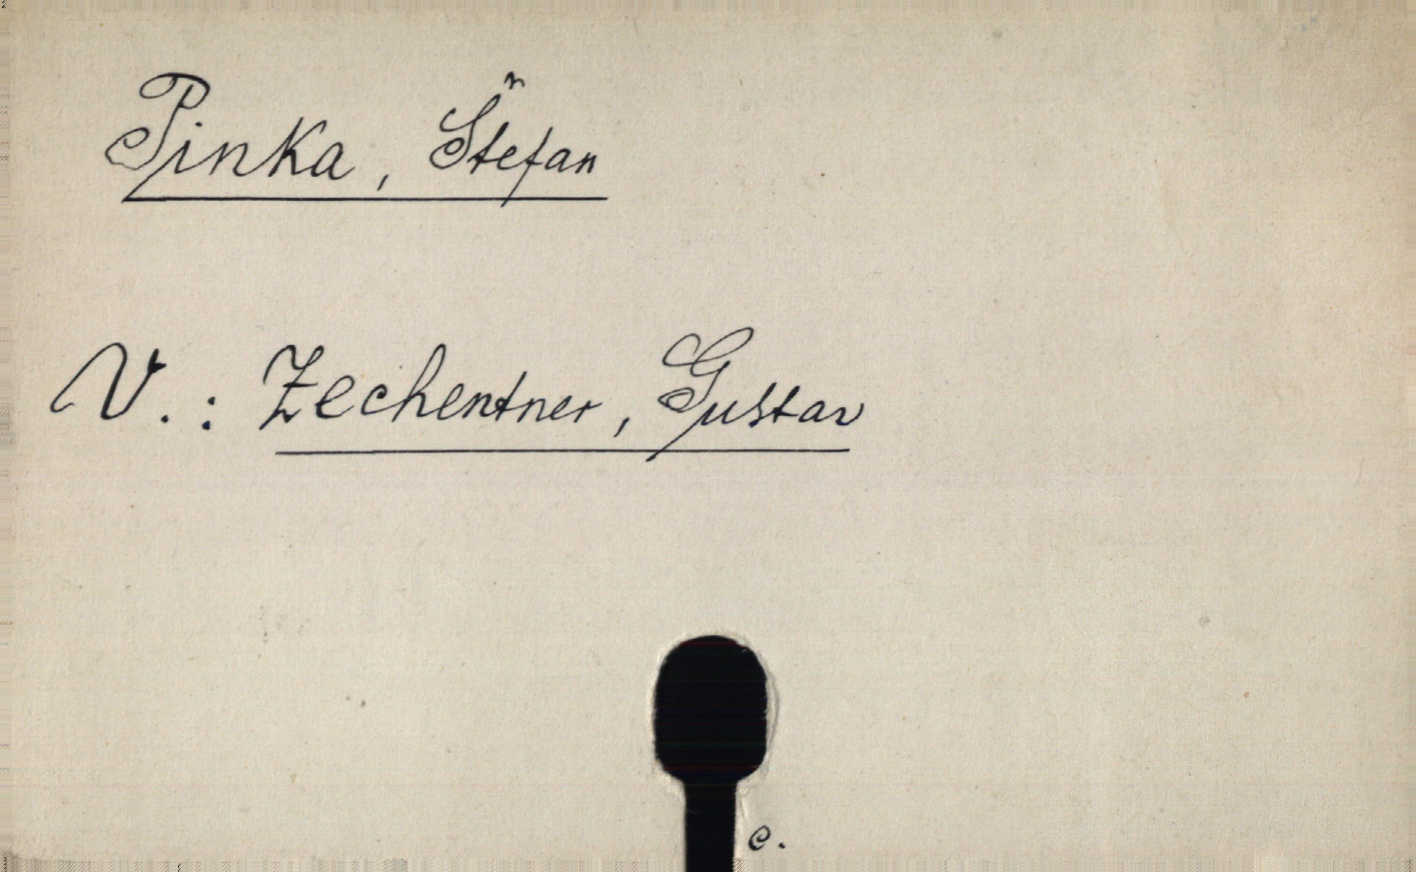 Pinka, Štefan
V.: Zechentner, Gustav
e.